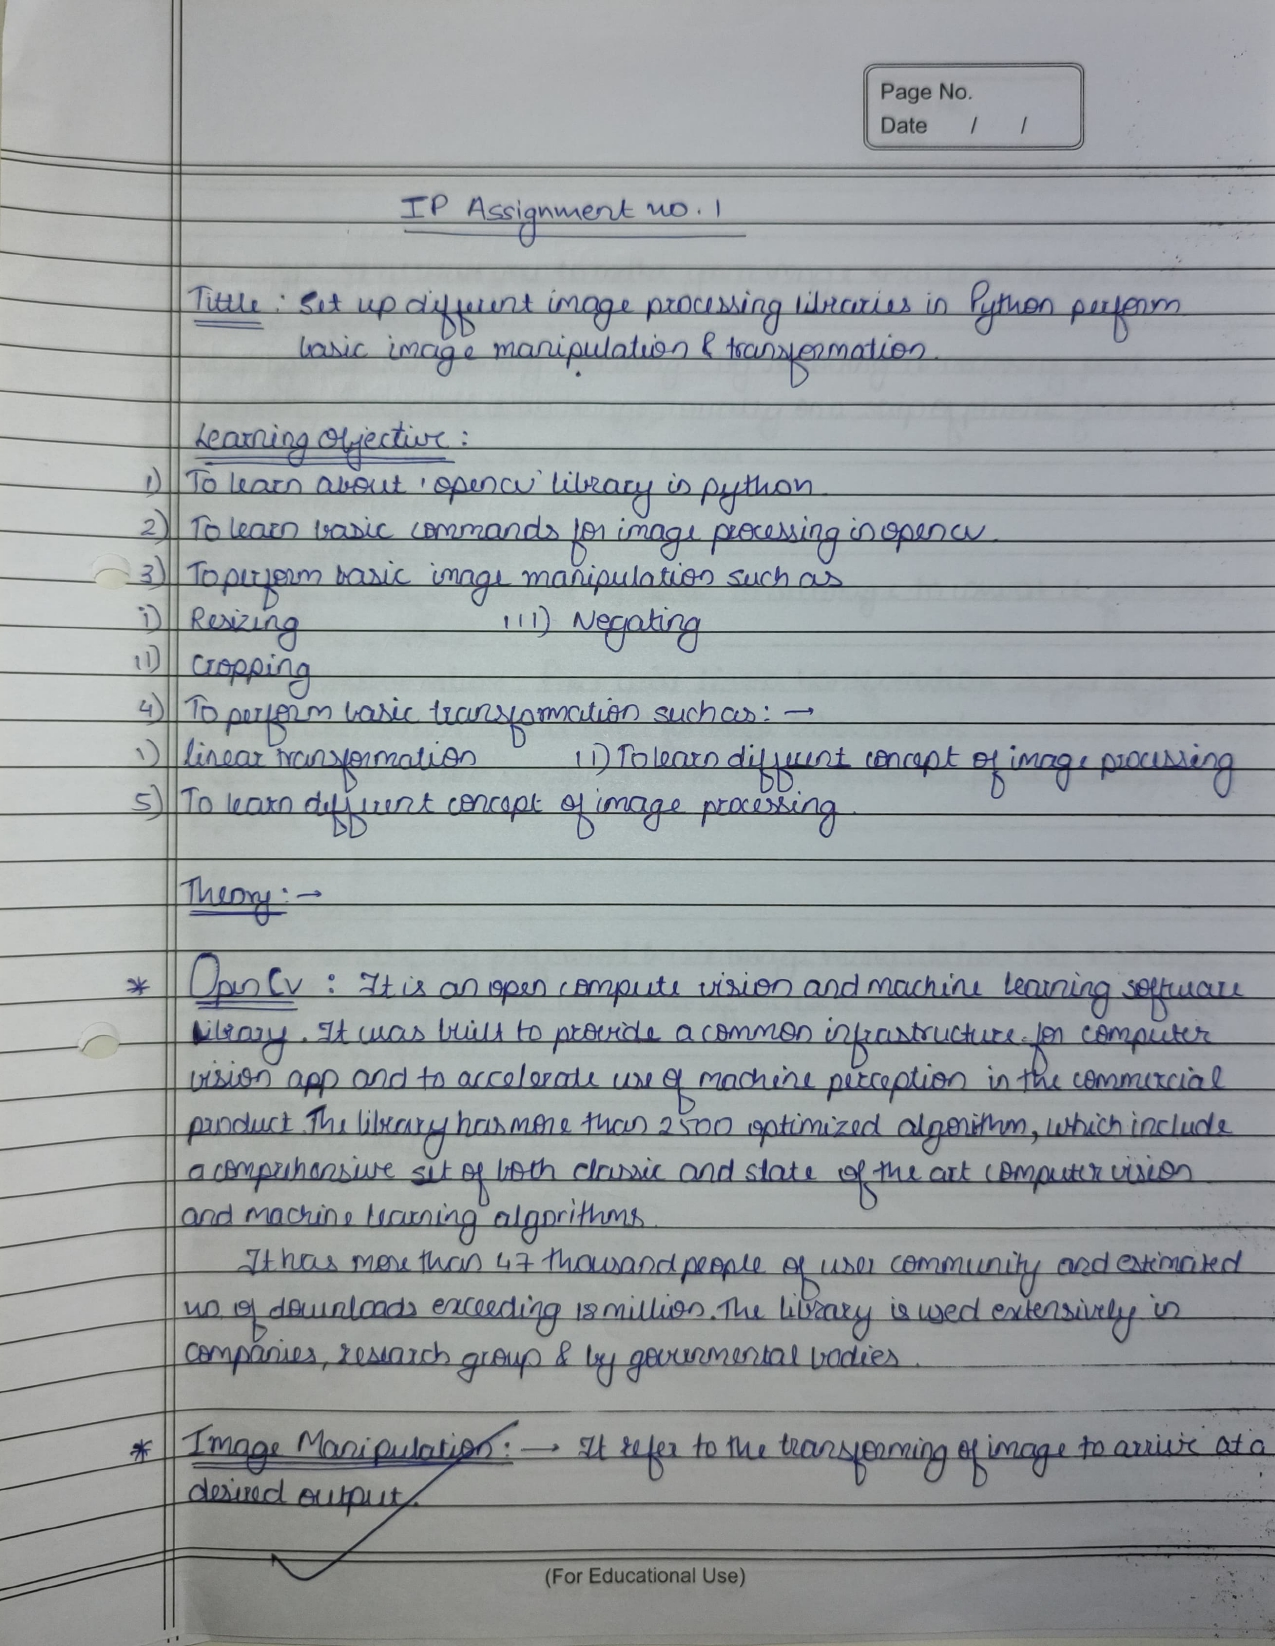 Page No.
Date / /
IP Assignment no. 1
Tittle : Set up different image processing libraries in Python perform
basic image manipulation & transformation.
Learning Objective :
1) To learn about 'opencv' library in python.
2) To learn basic commands for image processing in opencv.
3) To perform basic image manipulation such as
i) Resizing iii) Negating
ii) Cropping
4) To perform basic transformation such as : →
i) linear transformation ii) To learn different concept of image processing
5) To learn different concept of image processing.
Theory : →
* OpenCv : It is an open compute vision and machine learning software
library. It was built to provide a common infrastructure for computer
vision app and to accelerate use of machine perception in the commercial
product. The library has more than 2500 optimized algorithm, which include
a comprehensive set of both classic and state of the art computer vision
and machine learning algorithms.
It has more than 47 thousand people of user community and estimated
no of downloads exceeding 18 million. The library is used extensively in
companies, research group & by governmental bodies.
* Image Manipulation : → It refer to the transforming of image to arrive at a
desired output.
(For Educational Use)